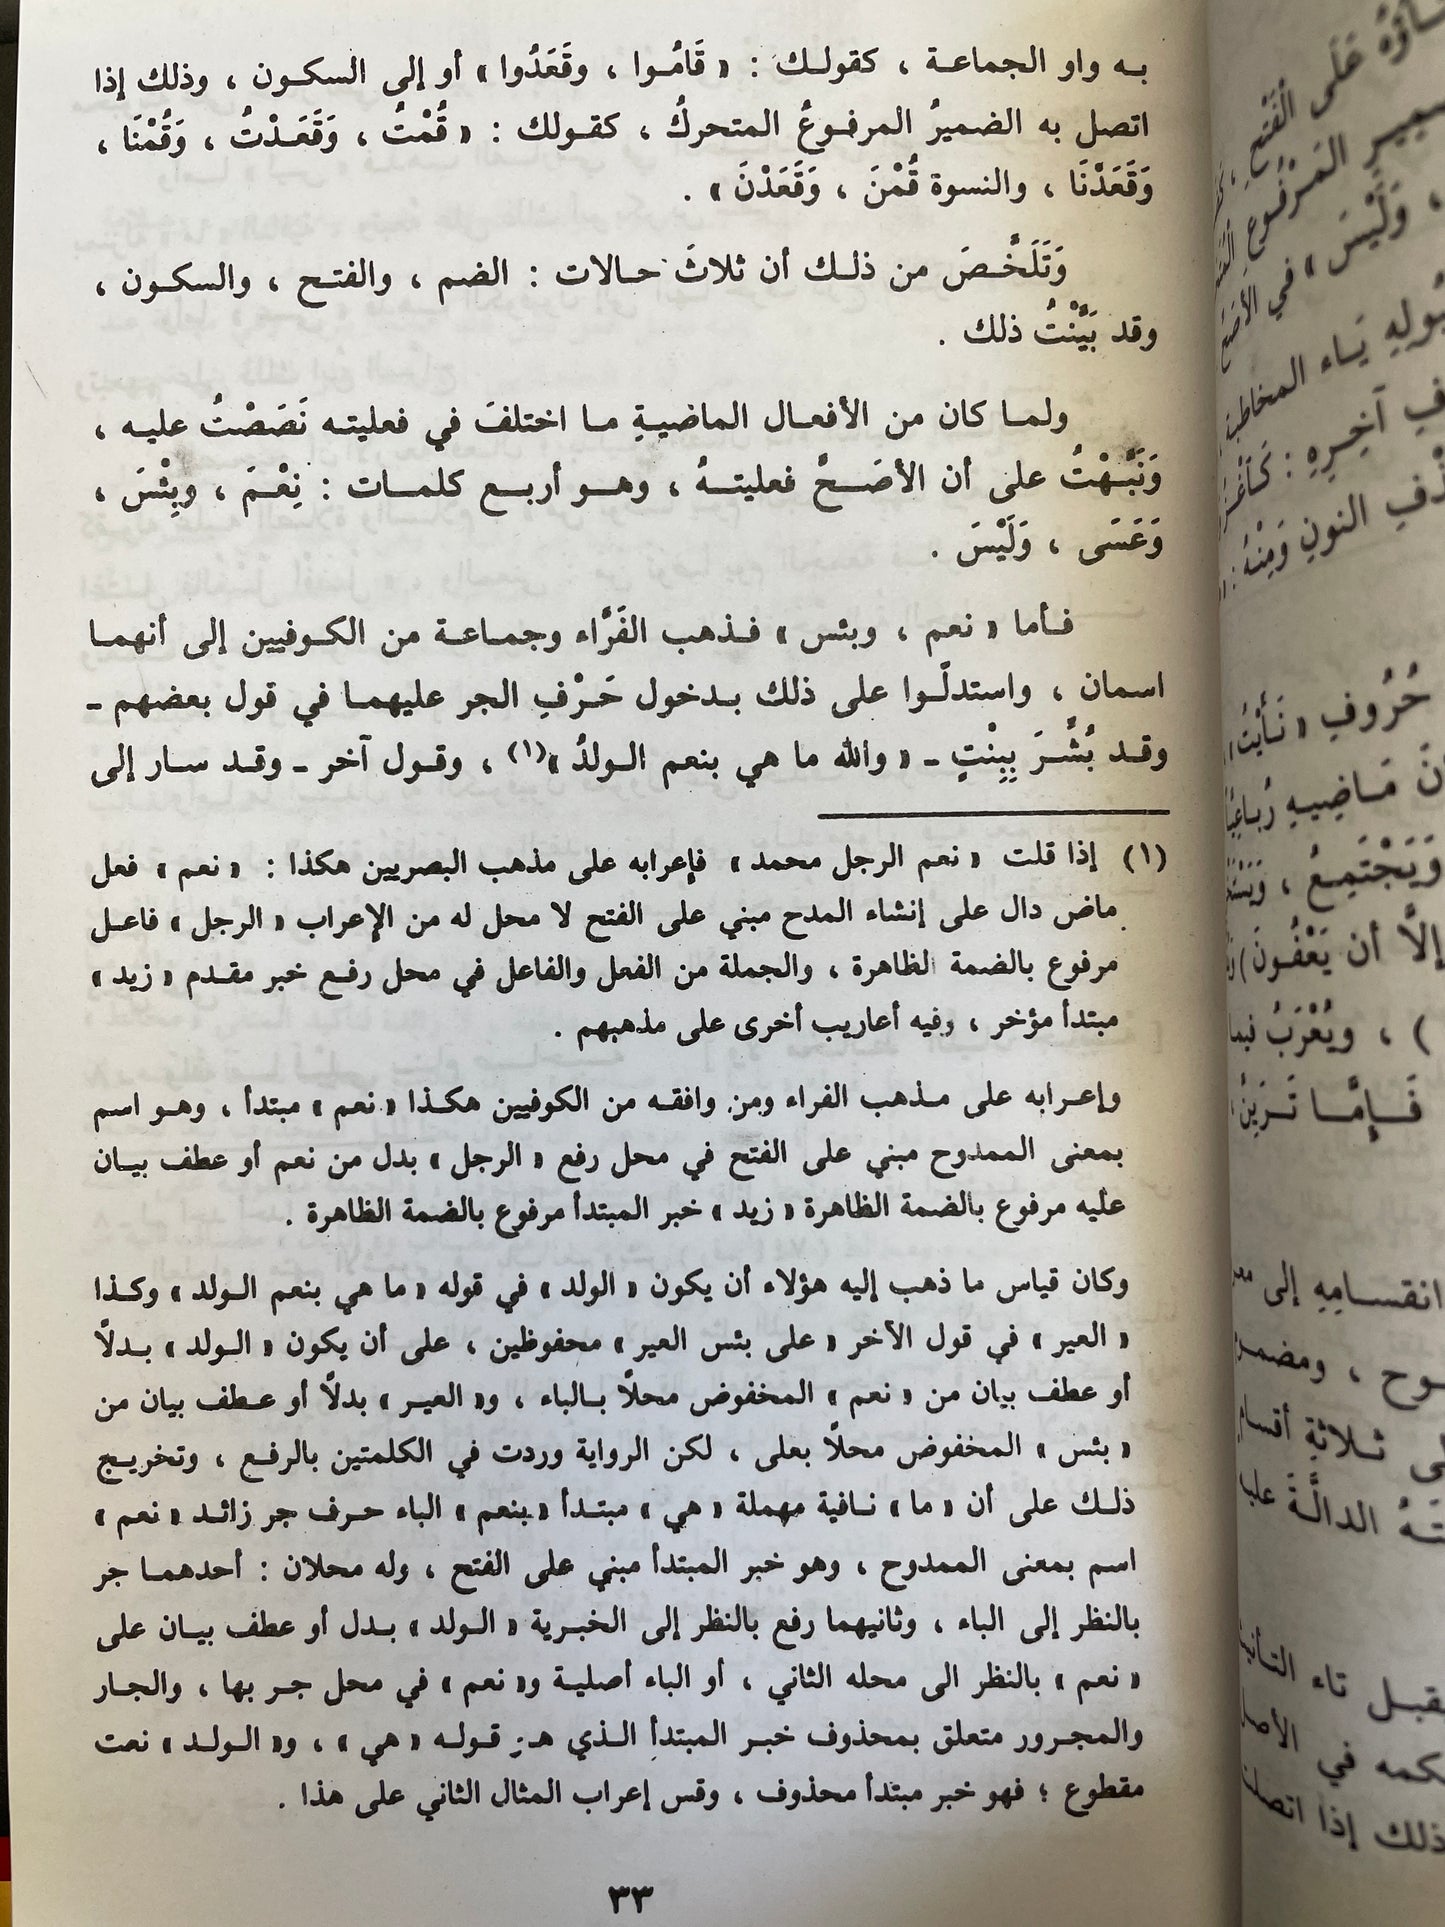 بـه واو الجماعـة ، كقولـك : « قَامُـوا ، وقَعَدُوا » أو إلى السكـون ، وذلك إذا
اتصل به الضميرُ المرفـوعُ المتحركُ ، كقـولك : « قُمْتُ ، وَقَعَـدْتُ ، وَقُمْنَا ،
وَقَعَدْنَا ، والنسوة قُمْنَ ، وَقَعَدْنَ » .
وَتَلَخَّـصَ من ذلـك أن ثلاثَ حـالات : الضم ، والفتـح ، والسكـون ،
وقد بَيَّنْتُ ذلك .
ولمـا كان من الأفعـال الماضيـةِ مـا اختلفَ في فعليتـه نَصَصْتُ عليـه ،
وَنَبَّـهْتُ على أن الأصَـحَّ فعليتـهُ ، وهـو أربـع كلمـات : نِعْـمَ ، وبِئْسَ ،
وَعَسَى ، وَلَيْسَ .
فـأما « نعم ، وبئس » فـذهب الفَرَّاء وجمـاعـة من الكـوفيين إلى أنهمـا
اسمان ، واستدلّـوا على ذلك بـدخول حَـرْفِ الجر عليهمـا في قول بعضهم ـ
وقـد بُشِّـرَ بِبِنْتٍ ـ « والله ما هي بنعم الـولدُ »(١) ، وقـول آخر ـ وقـد سـار إلى
(١) إذا قلت « نعم الرجل محمد » فإعرابه على مذهب البصريين هكذا : « نعم » فعل
ماض دال على إنشاء المدح مبني على الفتح لا محل له من الإعراب « الرجل » فاعـل
مرفوع بالضمة الظاهرة ، والجملة من الفعل والفاعل في محل رفـع خبر مقـدم « زيد »
مبتدأ مؤخر ، وفيه أعاريب أخرى على مذهبهم .
وإعـرابه على مـذهب الفراء ومن وافقـه من الكوفيين هكـذا « نعم » مبتدأ ، وهـو اسم
بمعنى الممدوح مبني على الفتح في محل رفع « الرجل » بدل من نعم أو عطف بيـان
عليه مرفوع بالضمة الظاهرة « زيد » خبر المبتدأ مرفوع بالضمة الظاهرة .
وكان قياس ما ذهب إليه هؤلاء أن يكون « الولد » في قوله « ما هي بنعم الـولد » وكـذا
« العير » في قول الآخر « على بئس العير » محفوظين ، على أن يكون « الـولد » بـدلاً
أو عطف بيان من « نعم » المخفوض محلاً بـالباء ، و« العيـر » بدلاً أو عـطف بيان من
« بئس » المخفوض محلاً بعلى ، لكن الرواية وردت في الكلمتين بالرفـع ، وتخريـج
ذلـك على أن « ما » نـافية مهملة « هي » مبتـدأ « بنعم » الباء حـرف جر زائـد « نعم »
اسم بمعنى الممدوح ، وهو خبر المبتدأ مبني على الفتح ، وله محلان : أحدهمـا جر
بالنظر إلى الباء ، وثانيهما رفع بالنظر إلى الخبـرية « الـولد » بـدل أو عطف بيـان على
« نعم » بالنظر الى محله الثاني ، أو الباء أصليـة و« نعم » في محل جـر بها ، والجـار
والمجـرور متعلق بمحذوف خبـر المبتدأ الـذي هـو قـولـه « هي » ، و« الـولـد » نعت
مقطوع ؛ فهو خبر مبتدأ محذوف ، وقس إعراب المثال الثاني على هذا .
٣٣